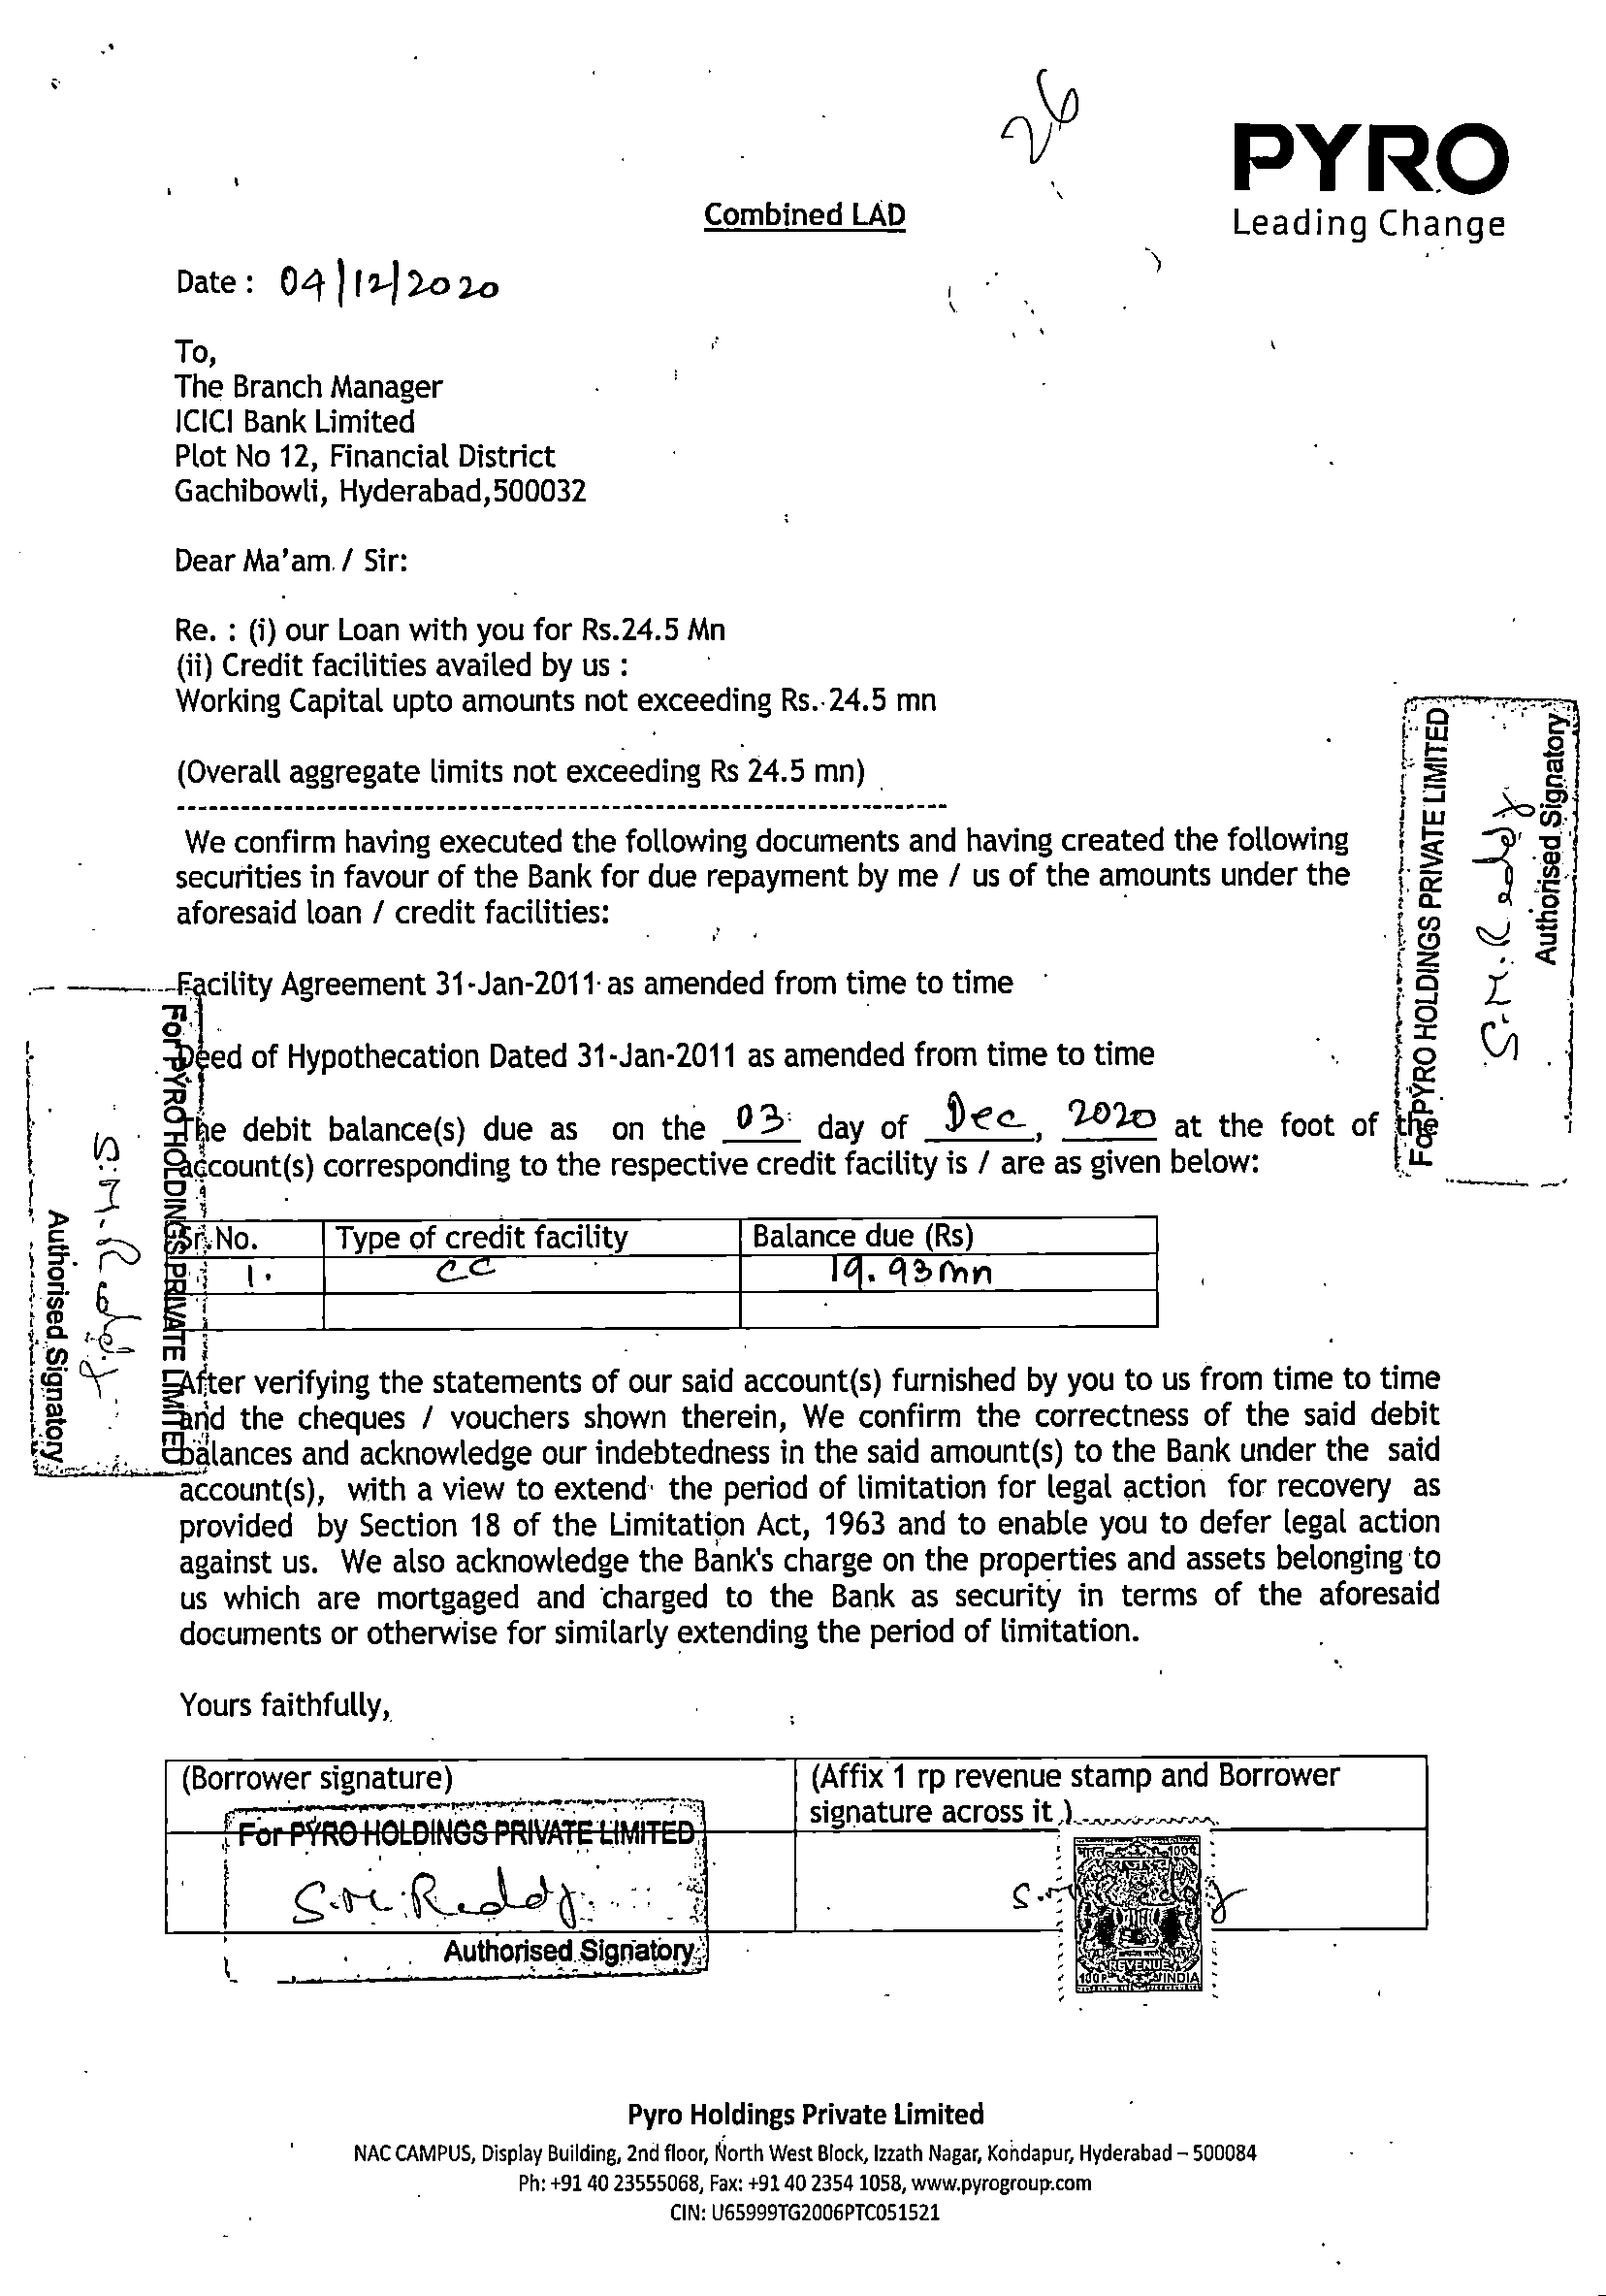 26
PYRO
Leading Change
Combined LAD
Date : 04/12/2020
To,
The Branch Manager
ICICI Bank Limited
Plot No 12, Financial District
Gachibowli, Hyderabad,500032
Dear Ma'am / Sir:
Re. : (i) our Loan with you for Rs.24.5 Mn
(ii) Credit facilities availed by us :
Working Capital upto amounts not exceeding Rs. 24.5 mn
(Overall aggregate limits not exceeding Rs 24.5 mn)
We confirm having executed the following documents and having created the following
securities in favour of the Bank for due repayment by me / us of the amounts under the
aforesaid loan / credit facilities:
Facility Agreement 31-Jan-2011 as amended from time to time
Deed of Hypothecation Dated 31-Jan-2011 as amended from time to time
The debit balance(s) due as on the 03 day of Dec, 2020 at the foot of the
account(s) corresponding to the respective credit facility is / are as given below:
Sr. No. Type of credit facility Balance due (Rs)
1. CC 19.93mn
After verifying the statements of our said account(s) furnished by you to us from time to time
and the cheques / vouchers shown therein, We confirm the correctness of the said debit
balances and acknowledge our indebtedness in the said amount(s) to the Bank under the said
account(s), with a view to extend the period of limitation for legal action for recovery as
provided by Section 18 of the Limitation Act, 1963 and to enable you to defer legal action
against us. We also acknowledge the Bank's charge on the properties and assets belonging to
us which are mortgaged and charged to the Bank as security in terms of the aforesaid
documents or otherwise for similarly extending the period of limitation.
Yours faithfully,
(Borrower signature)
(Affix 1 rp revenue stamp and Borrower
signature across it )
For PYRO HOLDINGS PRIVATE LIMITED
S.M.Reddy
Authorised Signatory
भारत 100P.
REVENUE
100P. INDIA
For PYRO HOLDINGS PRIVATE LIMITED
S.M.Reddy
Authorised Signatory
For PYRO HOLDINGS PRIVATE LIMITED
S.M.Reddy
Authorised Signatory
Pyro Holdings Private Limited
NAC CAMPUS, Display Building, 2nd floor, North West Block, Izzath Nagar, Kondapur, Hyderabad – 500084
Ph: +91 40 23555068, Fax: +91 40 2354 1058, www.pyrogroup.com
CIN: U65999TG2006PTC051521